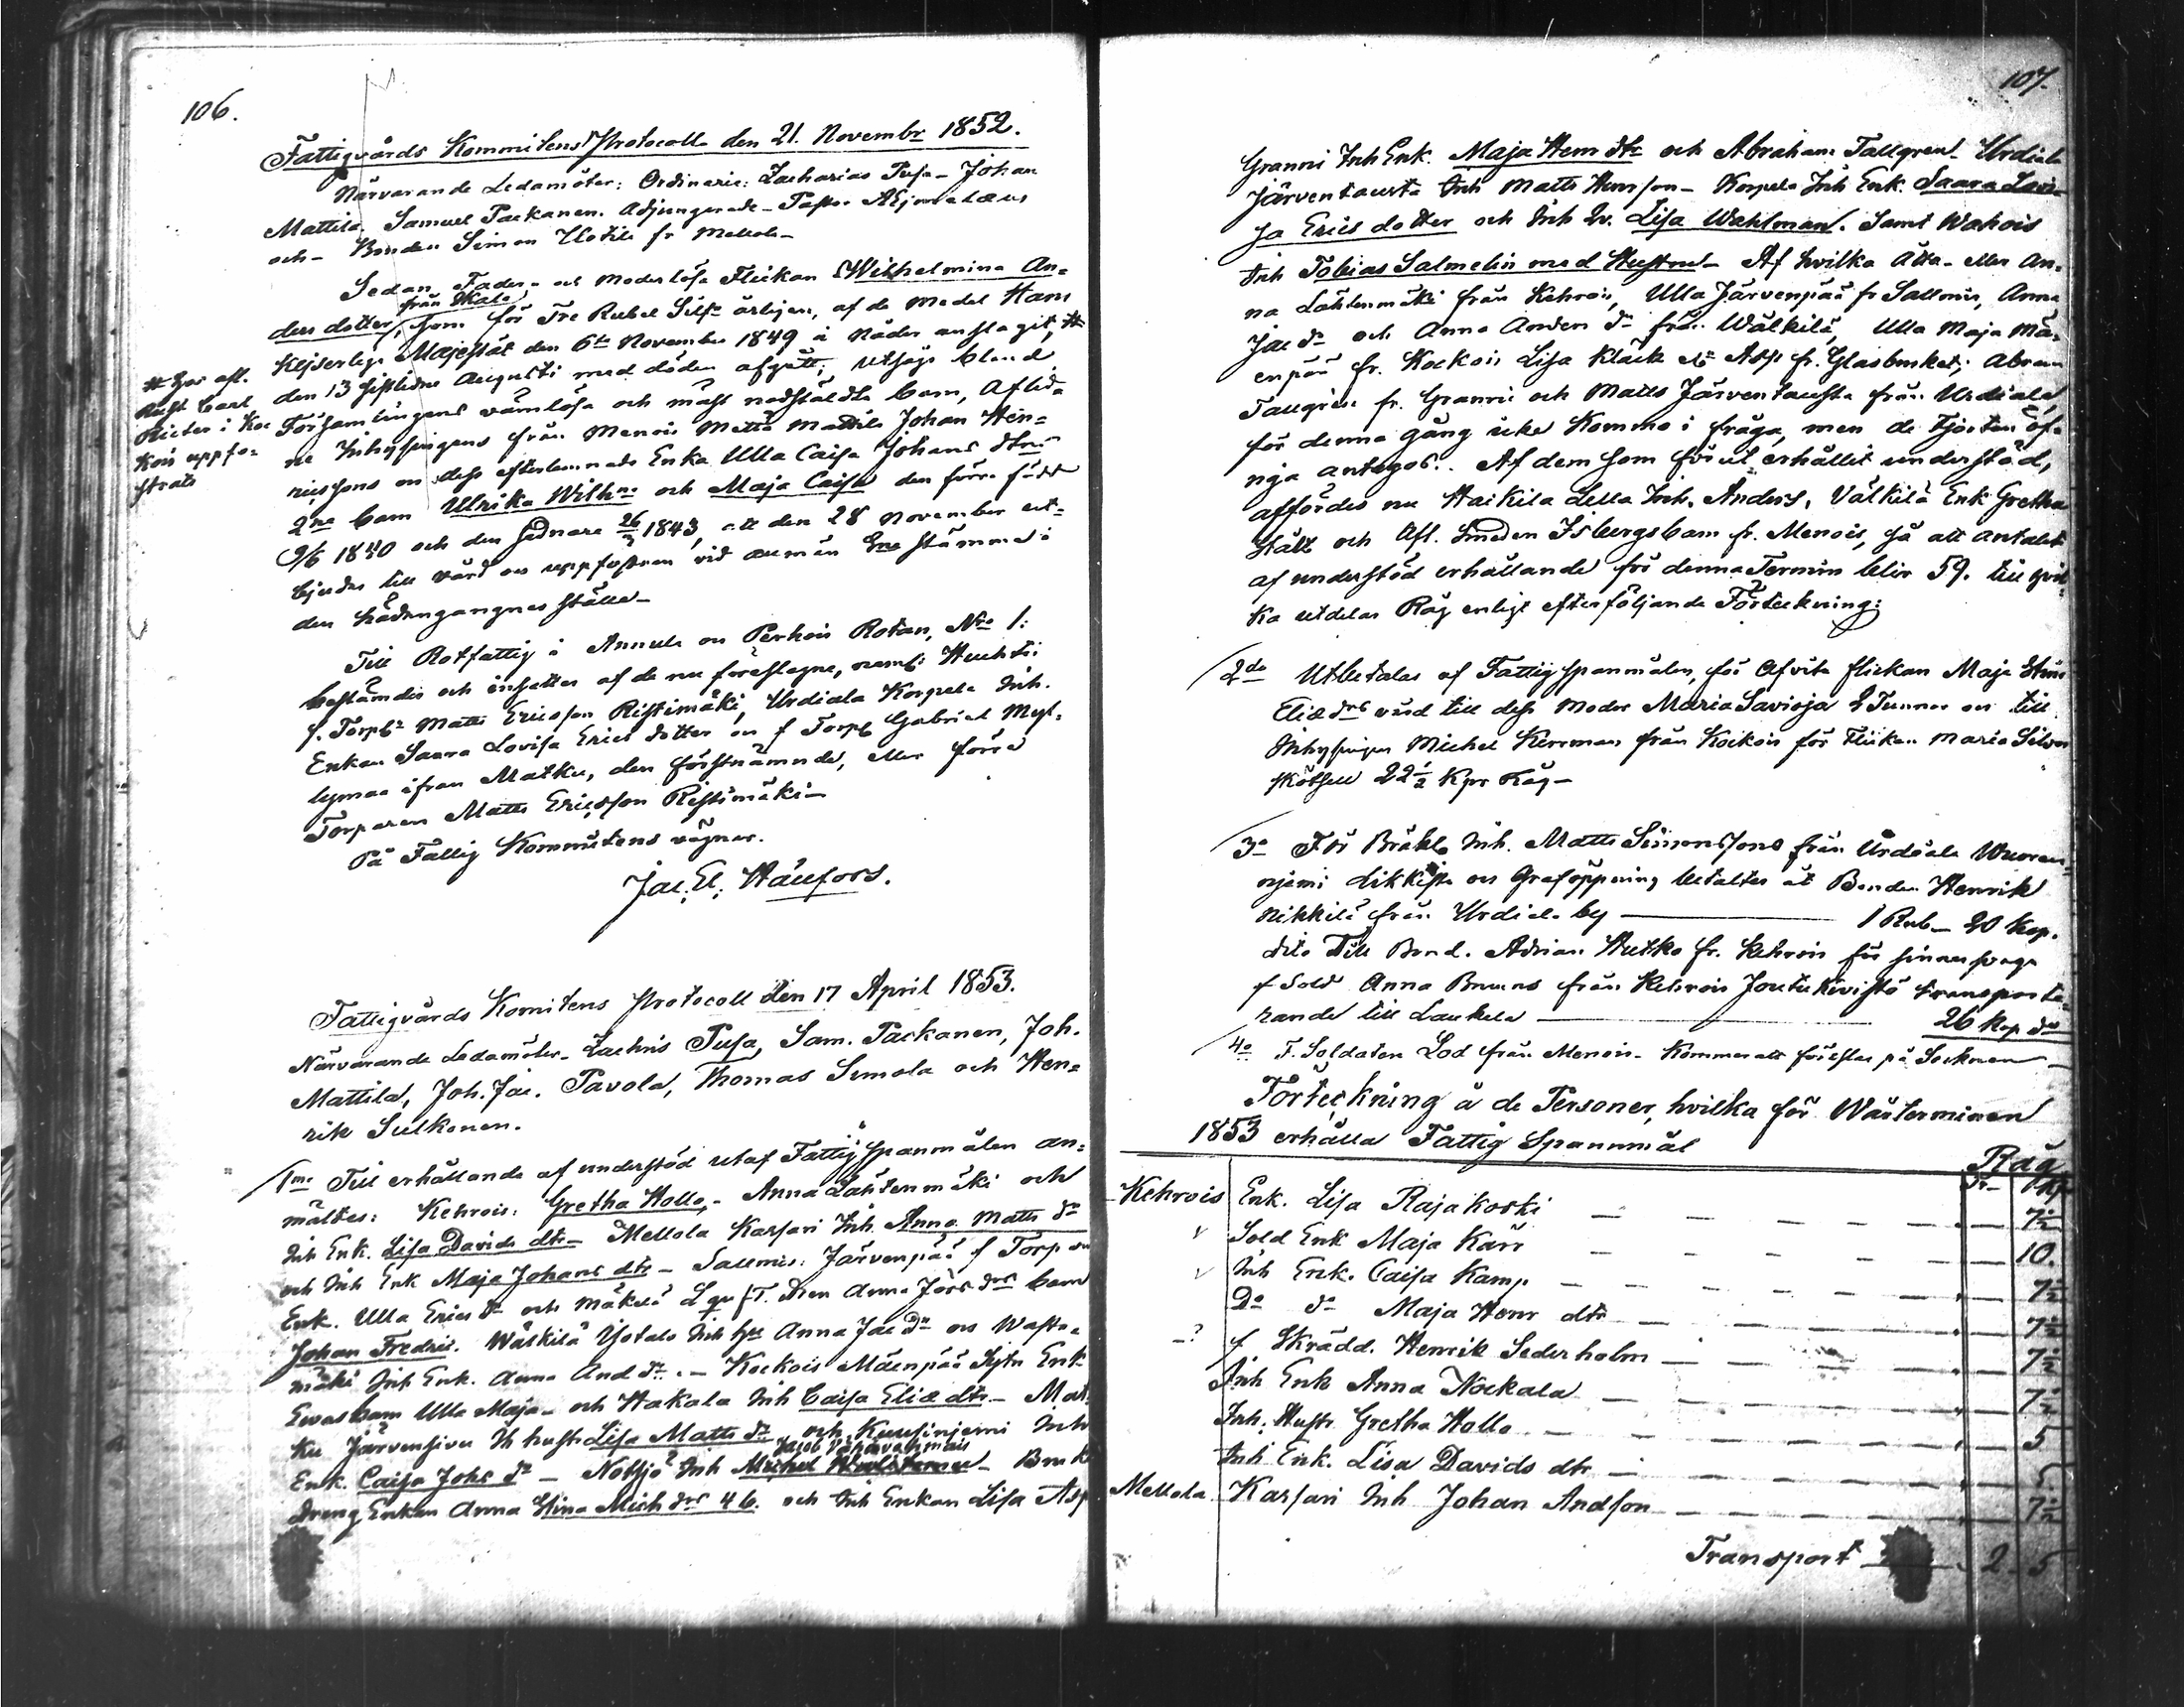 106.
Fattigvårds Kommitens Protocoll den 21. Novembr 1852.
Närvarande Ledamöter: Ordinarie: Zacharias Pusa – Johan
Mattila, Samuel Packanen. Adjungerade – Pastor
och – Bonden Simon Ilotile fr Mellola –
Sedan Fader- och Moderlösa Flickan Wilhelmina An=
från Skala
ders dotter, som för Tre Rubel Silfr årligen, af de medel Hans
Kejserliga Majestät den 6te November 1849 i Nåder anslagit, #
# hos afl.
Carl
Richter i Koc
kois uppfo=
strats
den 13 sistledne Augusti med döden afgått; utsågs bland
Församlingens värnlösa och mäst nödstäldta barn, Aflid=
ne Inhysingens från Menois Metta Mattila Johan Hen=
ricssons och dess efterlemnade Enka Ulla Caisa Johans dtrs
2ne barn Ulrika Wilhna och Maja Caisa den förra född
9/6 1840 och den sednare 26/3 1843, att den 28 November ut=
bjudas till vård och uppfostran vid allmän Sne stämma i
den hädangangnes ställe –
Till Rotfattig i Annula och Perhois Rotan, No 1:
bestämdes och insattes af de nu föreslagne, neml: Huchtis
f. Torpr Matts Ericsson Ristimäki, Urdiala Korpela Inh.
Enkan Saara Lovisa Erics dotter och f Torpr Gabriel Myl=
lymaa ifran Matku, den förstnämnde, eller förra
Torparen Matts Ericsson Ristimäki –
På Fattig Kommitens vägnar.
Jac. El. Hällfors.
Fattigvårds Komitens Protocoll den 17 April 1853.
Närvarande Ledamöter – Zachris Pusa, Sam. Packanen, Joh.
Mattila, Joh. Jac. Pavola, Thomas Simola och Hen=
rik Sulkonen.
1mo Till erhållande af understöd utaf Fattig spanmålen an=
mältes: Kehrois: Gretha Hollo, – Anna Lähtenmäki och
Inh Enk. Lisa Davids dtr – Mellola Karsari Inh. Anna Matts dr
och Inh Enk Maja Johans dtr – Sallmis: Järvenpää f Torp
Enk. Ulla Erics dr och Mäkelä Anna barn
Johan Fredric. Wälkilä Ujotalo Inh Anna Jac dr och
mäki Inh Enk. Anna And dr. – Kockois Mäenpää Enk
barn Ulla Maja – och Hakala Inh Caisa Elia dtr – Mat
ku Järvensivu hustr Lisa Matts dr och Kuusinjemi Inh
Jacob
Enk. Caisa Johs dr – Nottjö Inh Michel
Dreng Enkan Anna Stina Mich drs 4 b. och Inh Enkan Lisa Asp
107.
Granni Inh Enk. Maja Hem dtr och Abraham Tallgren – Urdiala
Järventausta Inh Matts Henrsson – Korpela Inh Enk. Saara Lovi=
sa Erics dotter och Inh Lisa Wahlman. Samt Wahois
Inh Tobias Salmelin med Hustru – Af hvilka Åtta – eller An=
na Lähtenmäki från Kehrois, Ulla Järvenpää fr Sallmis, Anna
Jac dr och Anna Anders dr från Wälkilä, Ulla Maja Mä=
enpää fr. Kockois Lisa Kläck Asp fr. Glasbruket; Abram
Tallgren fr. Granni och Matts Järventausta från Urdiala
för denna gång icke Kommo i fråga, men de Fjorton öf=
riga antagos. Af dem som förut erhållit understöd,
affördes nu Haikila Lella Inh. Anders, Välkilä Enk Gretha
Ståll och Afl. Smeden Isbergs barn fr. Menois, så att antalet
af understöd erhållande för denna Termin blir 59. till hvil=
ka utdelas Råg enligt efterföljande Förteckning:
2do Utbetalas af Fattig spanmålen, för Afvita flickan Maja Stina
Eliæ drs vård till dess Moder Maria Savioja 2 Tunnor och till
Inhysingen Michel Kerrman från Kockois för Flickan Maria
skötsell 22 1/2 Kpr Råg –
3o För Bräkl. Inh. Matts Simonssons från Urdiala Wuoren=
njemi Likkista och Graföppning betaltes åt Bonden Henrik
Nikkilä från Urdiala by — 1 Rub – 20 Kop.
dito Till Bond. Adrian Hutko fr. Kehrois för sinnes svaga
f Sold Anna Bruuns från Kehrois Joutukivistö transporte=
rande till Laukela — 26 Kop dr
4o F. Soldaten Lod från Menois – Kommer att förestås på Socknen –
Förteckning å de Personer, hvilka för Wårterminen
1853 erhålla Fattig Spannmål
Råg
Tr Kpr
Kehrois Enk. Lisa Rajakoski — 7 1/2
Sold Enk Maja Karr — 10.
Inh Enk. Caisa Kamp — 7 1/2
Do do Maja Henr dtr — 7 1/2
f Skrädd. Henrik Sederholm — 7 1/2
Inh Enk Anna Nockala — 7 1/2
Inh. Hustr Gretha Hollo — 5
Inh Enk. Lisa Davids dtr — 5.
Mellola Karsari Inh Johan Andsson — 7 1/2
Transport — 2 – 5